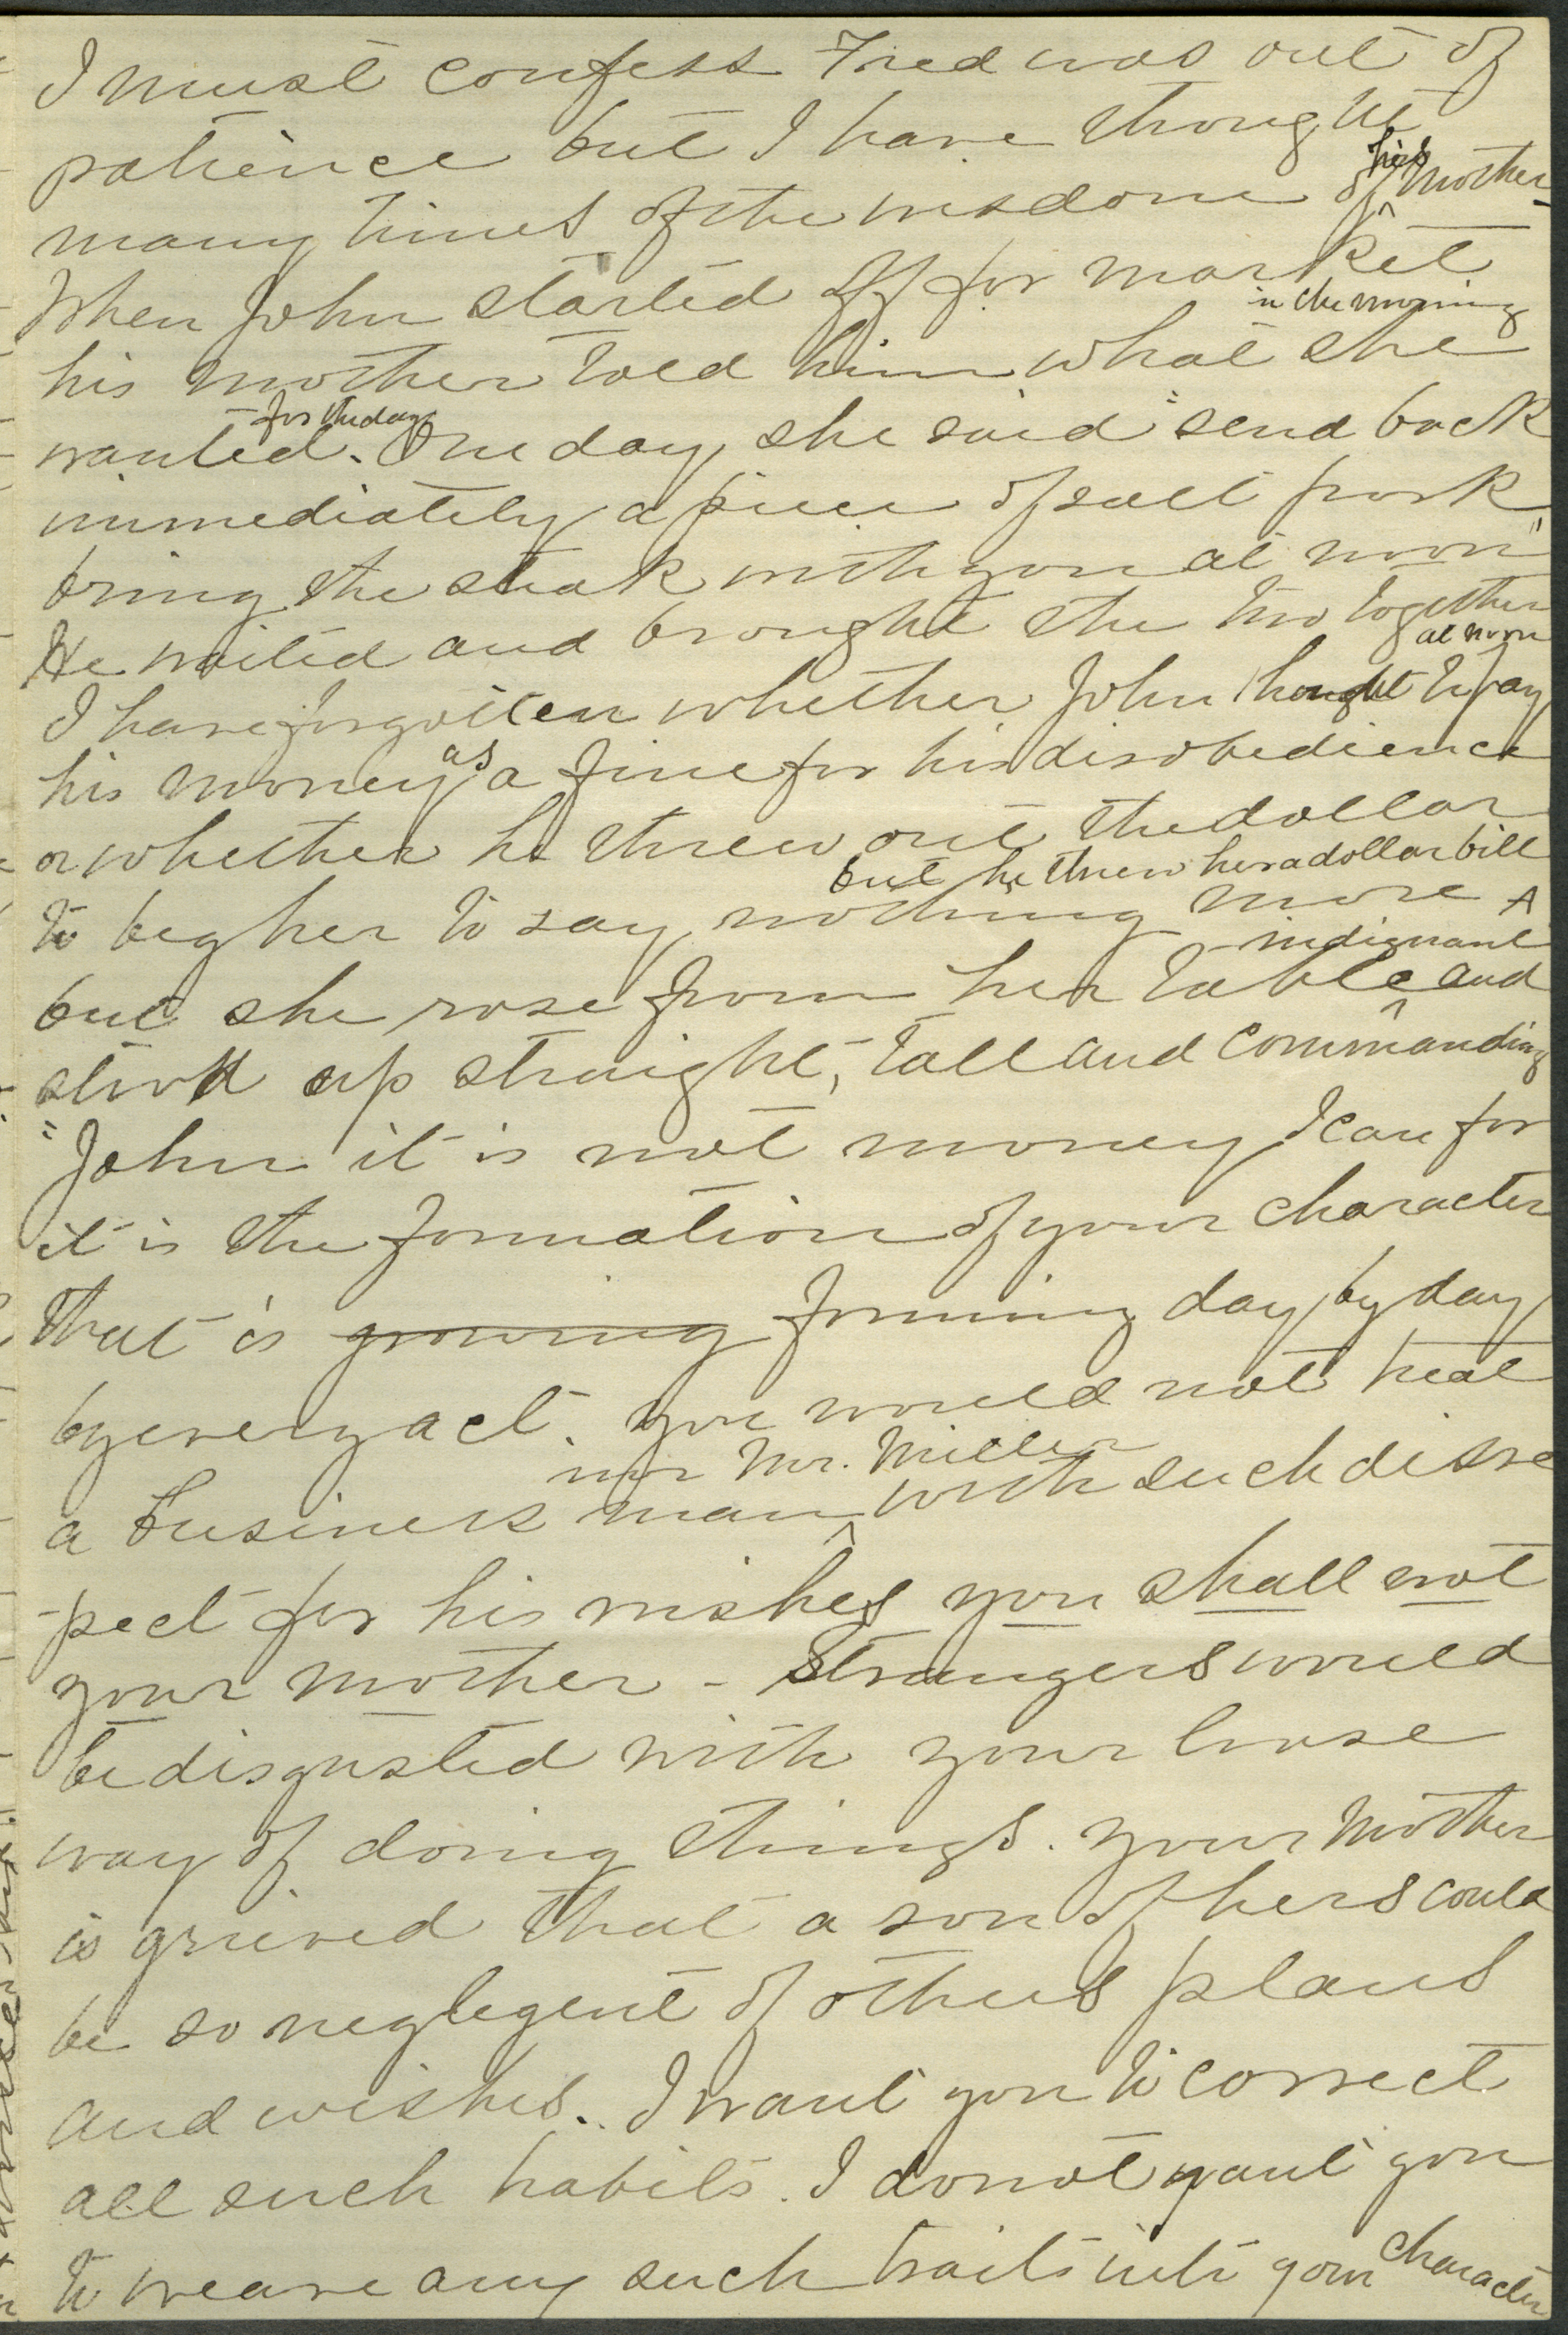 I must confess Fred was out of
patience but I have thought
many times of the wisdome of his mother-
When John started off for market
in the morning
his mother told him what she
for the day
wanted. One day she said "send back
immediately a piece of salt pork
bring the steak with you at noon"
He waited and brought the two together
at noon
I have forgotten whether John thought to pay
his money as a fine for his disobedience
or whether he threw out the dollar
but he threw her a dollar bill
to beg her to say nothing more
indignant
but she rose from her table and
stood up straight, tall and commanding
"John it is not money I care for
it is the formation of your character
that is growing forming day by day
by every act. you would not treat
nor Mr. Miller
a business man with such disre
-pect for his wishes you shall not
your mother - Strangers would
be disgusted with your loose
way of doing things. your mother
is grieved that a son of hers could
be so neglegent of others plans
and wishes.. I want you to correct
all such habits. I do not want you
to weave any such traits into your character